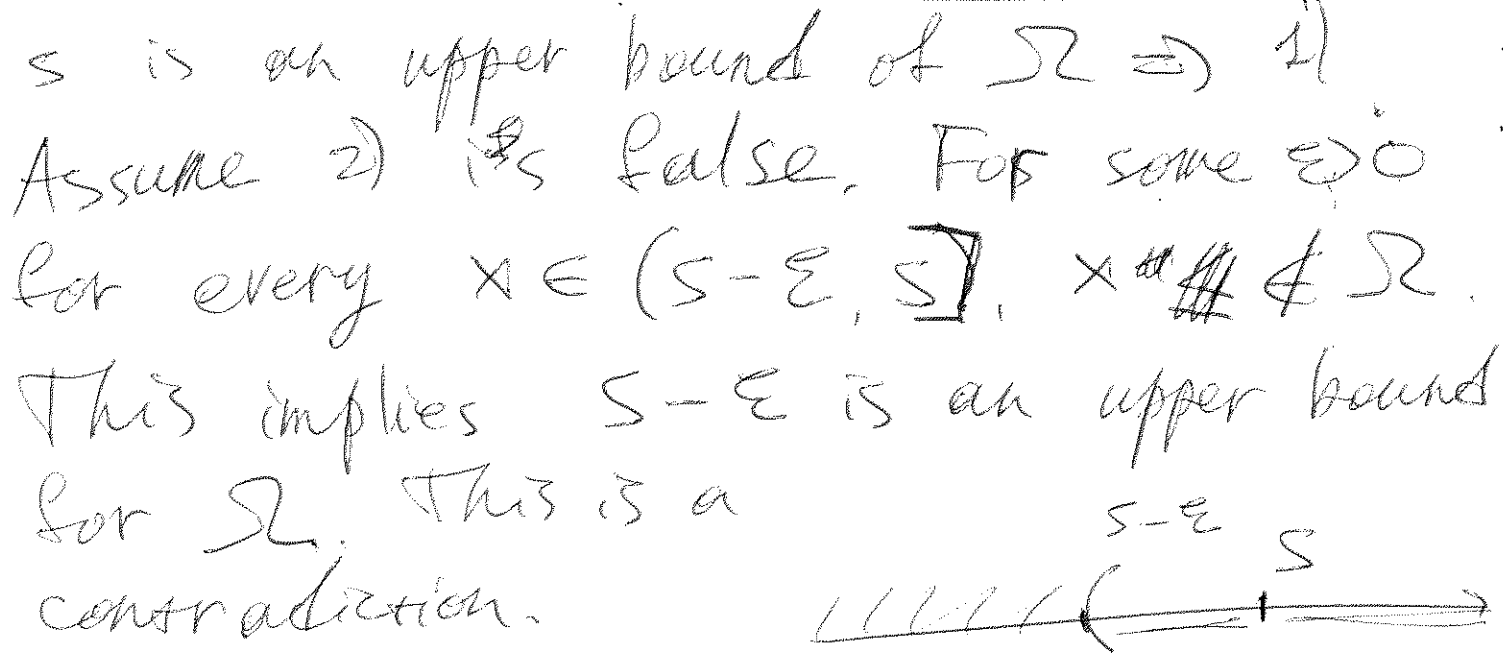 s is an upper bound of Ω ⇒ 1)
Assume 2) is false. For some ε>0
for every x ∈ (s-ε, s], x ∉ Ω.
This implies s-ε is an upper bound
for Ω. This is a
contradiction.
s-ε s